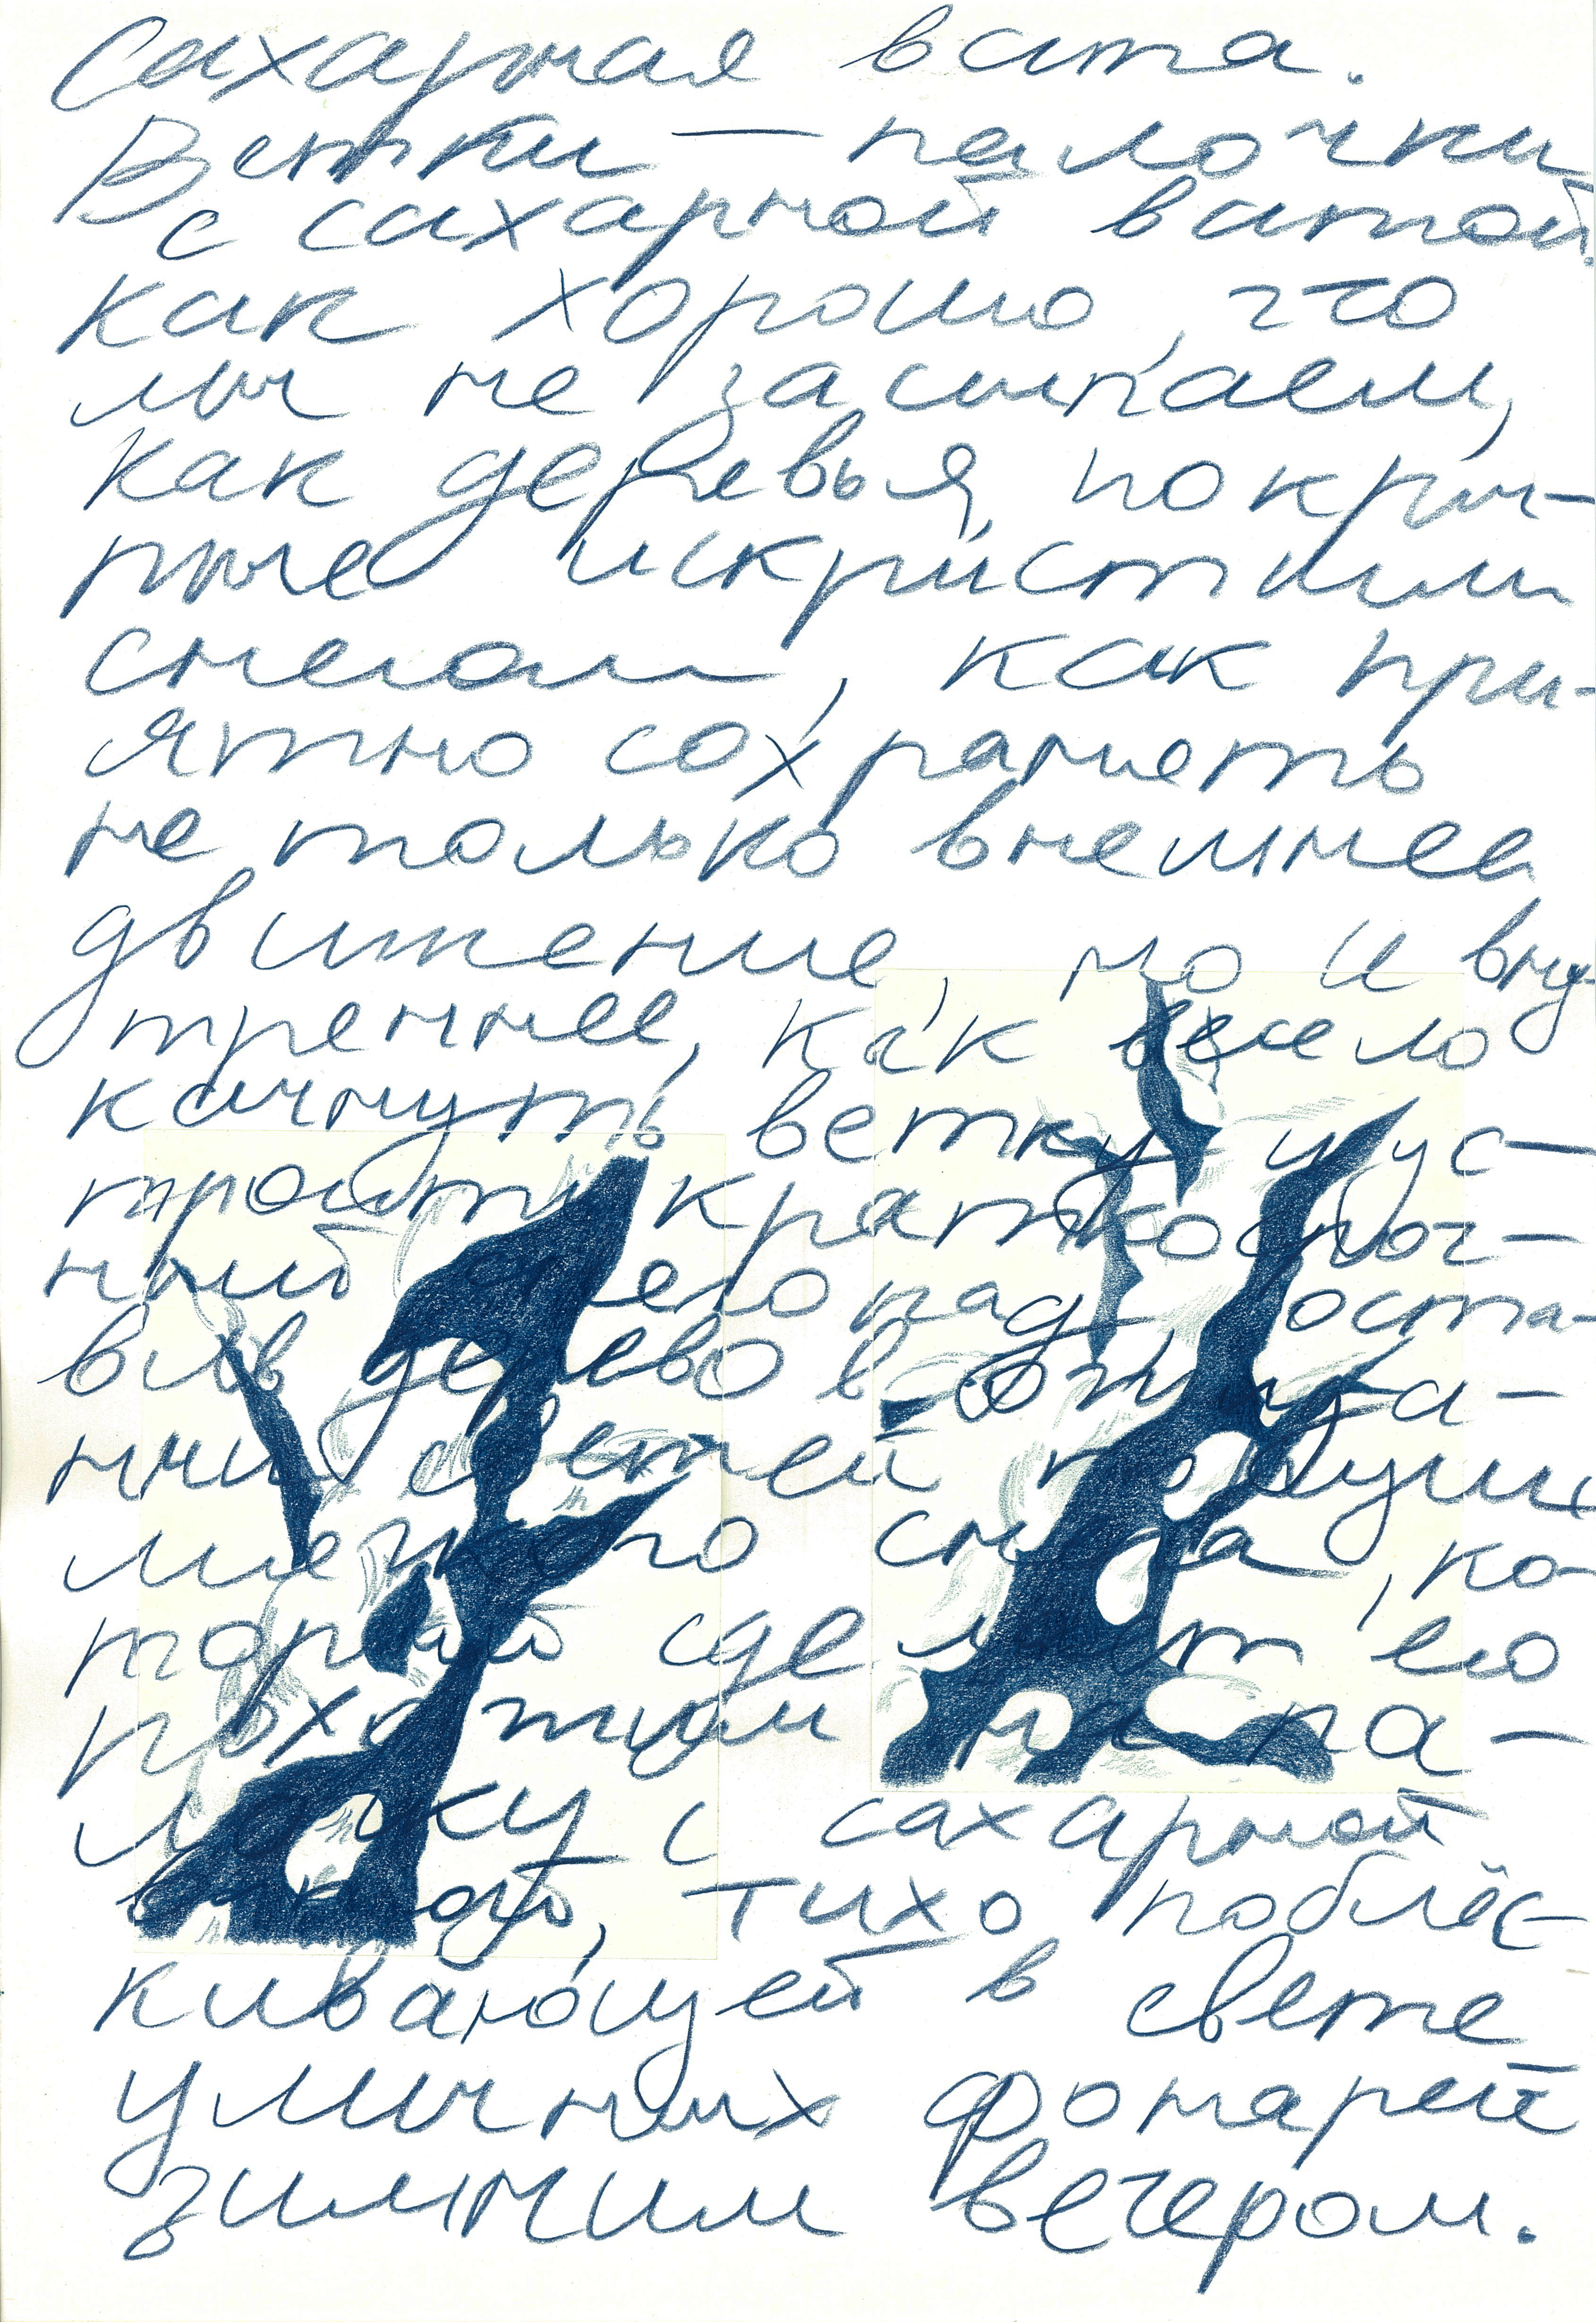 Сахарная вата.
Ветки — палочки
с сахарной ватой.
Как хорошо, что
мы не засыпаем,
как деревья, покры-
тые искристым
снегом, как при-
ятно сохранять
не только внешнее
движение, но и вну-
треннее, как весело
качнуть ветку и ус-
троить краткосроч-
ный снегопад, оста-
вив дерево в ожида-
нии сетей
снега, ко-
торый сделает его
похожим на па-
лочку с сахарной
ватой, тихо поблёс-
кивающей в свете
уличных фонарей
зимним вечером.